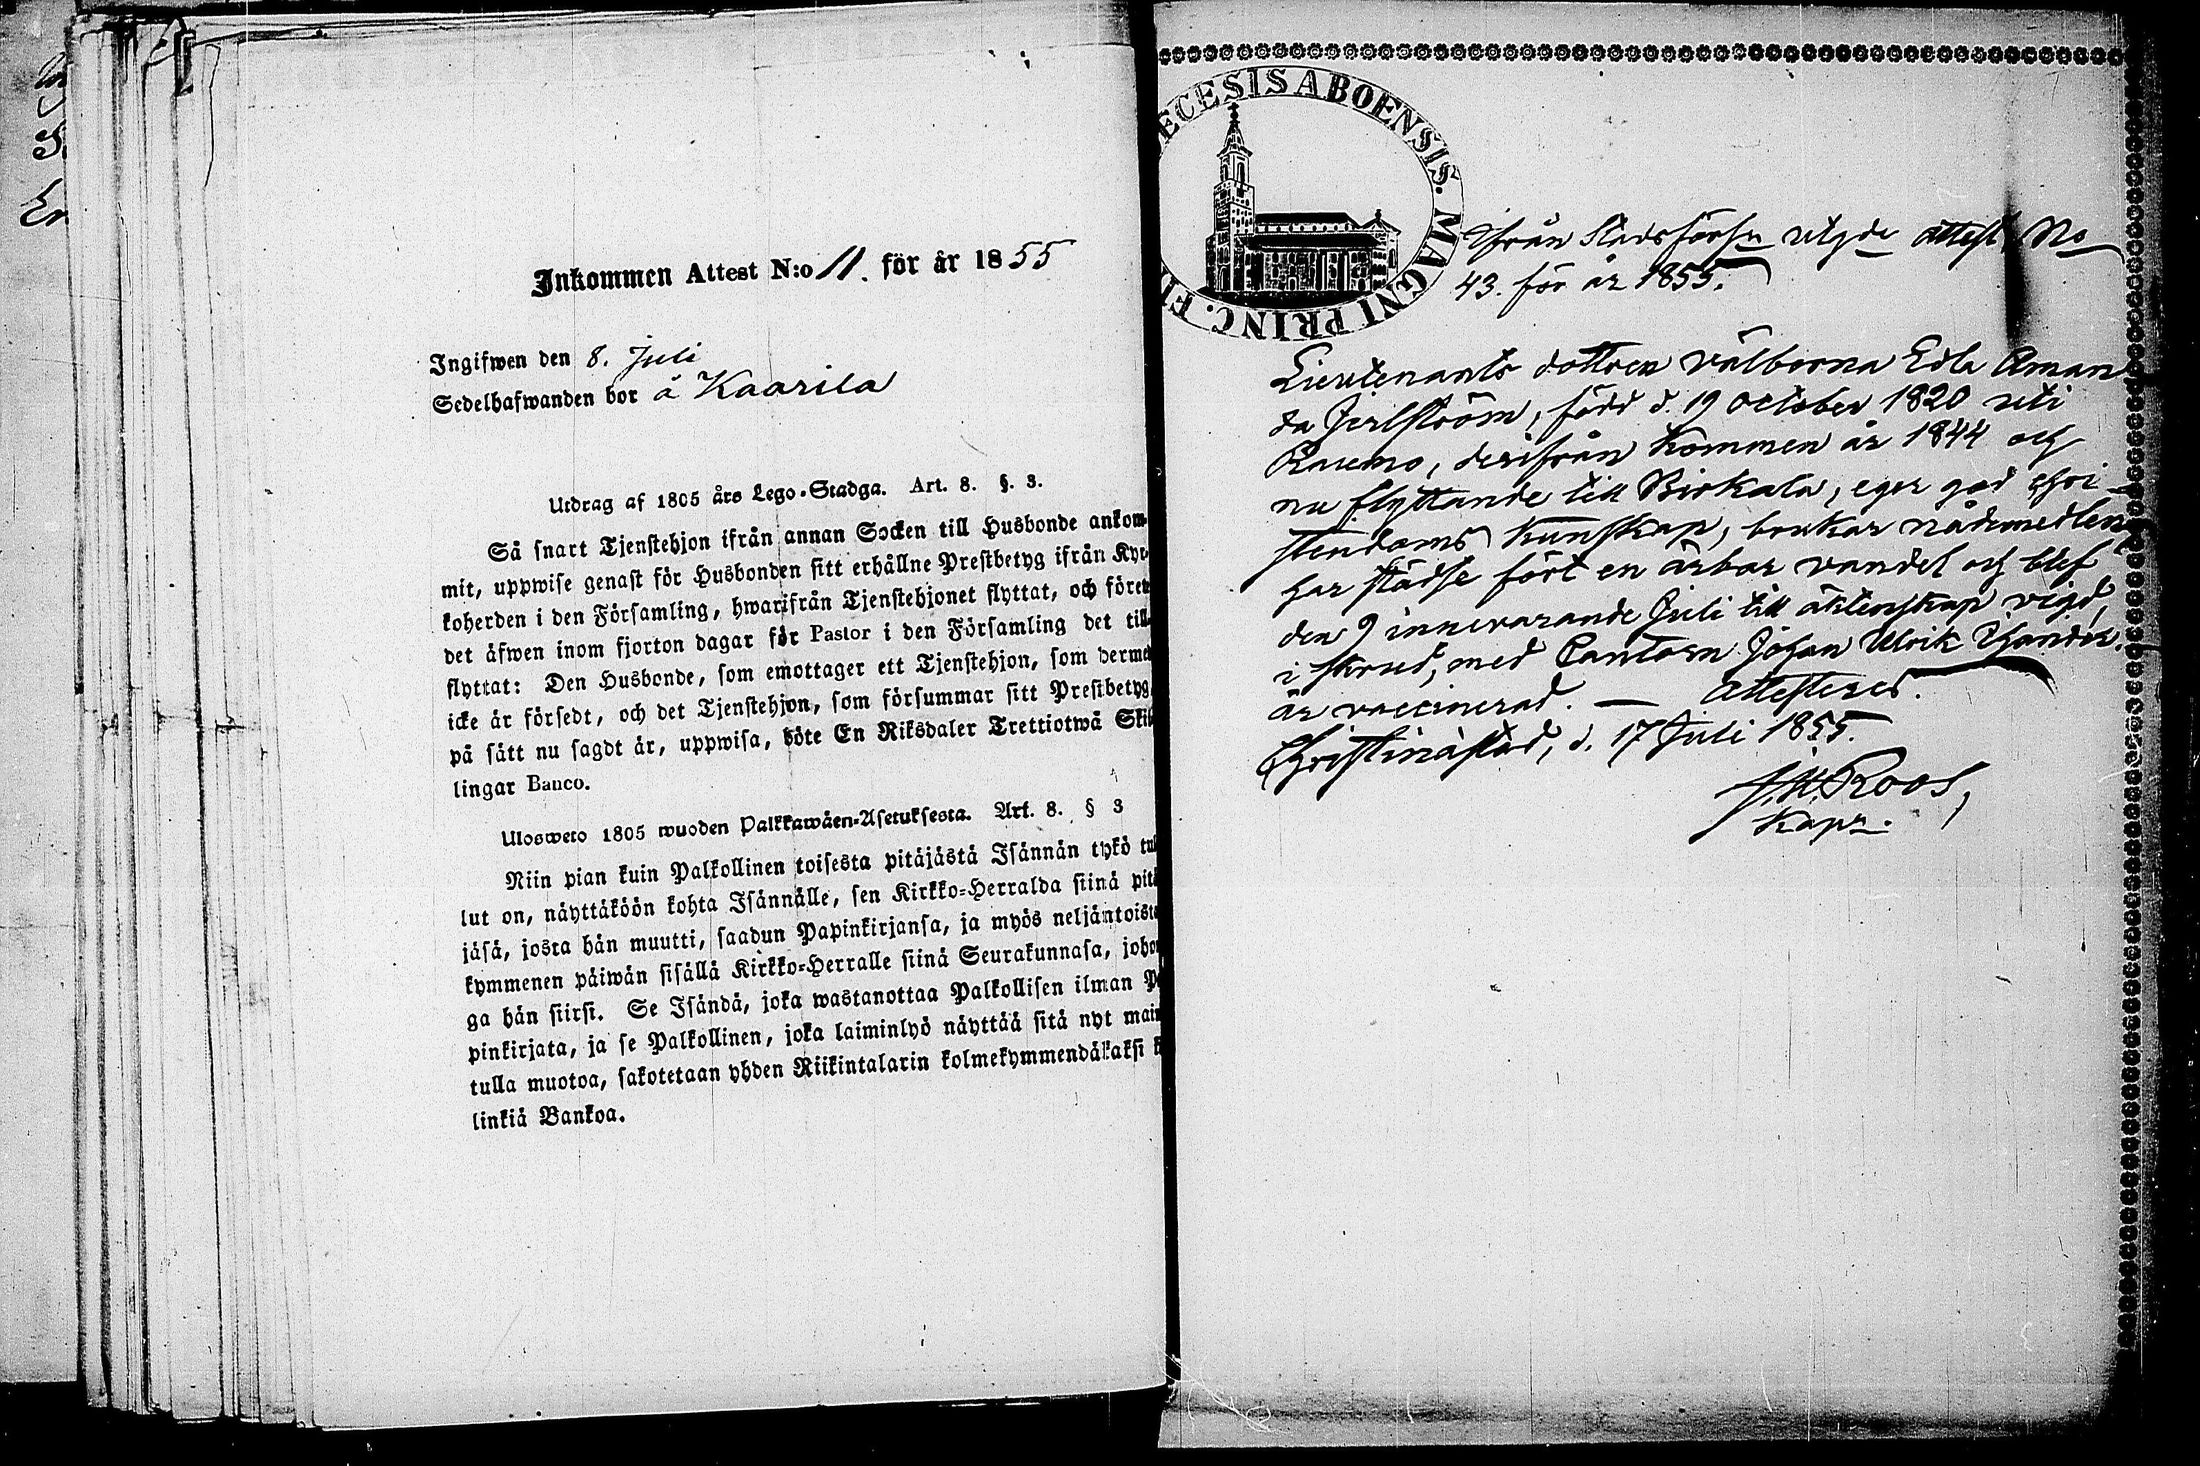 Inkommen Attest N:o 11. för år 1855
Ingifwen den 8. Juli
Sedelhafwanden bor å Kaarila
Utdrag af 1805 års Lego-Stadga. Art. 8. §. 3.
Så snart Tjenstehjon ifrån annan Socken till Husbonde ankom-
mit, uppwise genast för Husbonden sitt erhållne Prestbetyg ifrån Kyr-
koherden i den Församling, hwarifrån Tjenstehjonet flyttat, och förete
det äfwen inom fjorton dagar för Pastor i den Församling det till-
flyttat: Den Husbonde, som emottager ett Tjenstehjon, som dermed
icke är försedt, och det Tjenstehjon, som försummar sitt Prestbetyg,
på sätt nu sagdt är, uppwisa, böte En Riksdaler Trettiotwå Skil-
lingar Banco.
Ulosweto 1805 wuoden Palkkawäen-Asetuksesta. Art. 8. § 3
Niin pian kuin Palkollinen toisesta pitäjästä Isännän tykö tul-
lut on, näyttäköön kohta Isännälle, sen Kirkko-Herralda siinä pitä
jäsä, josta hän muutti, saadun Papinkirjansa, ja myös neljäntoista
kymmenen päiwän sisällä Kirkko-Herralle siinä Seurakunnasa, johon
ga hän siirsi. Se Isändä, joka wastanottaa Palkollisen ilman Pa
pinkirjata, ja se Palkollinen, joka laiminlyö näyttää sitä nyt main
tulla muotoa, sakotetaan yhden Riikintalarin kolmekymmendäkaksi k
linkiä Bankoa.
ECESIS ABOENSIS. MAGNI PRINC. FI
Ifrån Stadsförsn utgde attest No
43. för år 1855.
Lieutenants dottren välborna Edla Aman
da Jerlström, född d. 19 october 1820 uti
Raumo, derifrån kommen år 1844 och
nu flyttande till Birkala, eger god chri-
stendoms kunskap, brukar nådemedlen,
har städse fört en ärbar vandel och blef
den 9 innevarande Juli till äktenskap vigd,
i skrud, med Cantorn Johan Ulrik
är vaccinerad. — Attesterar.
Christinæstad, d. 17 Juli 1855.
Roos,
Kapn.